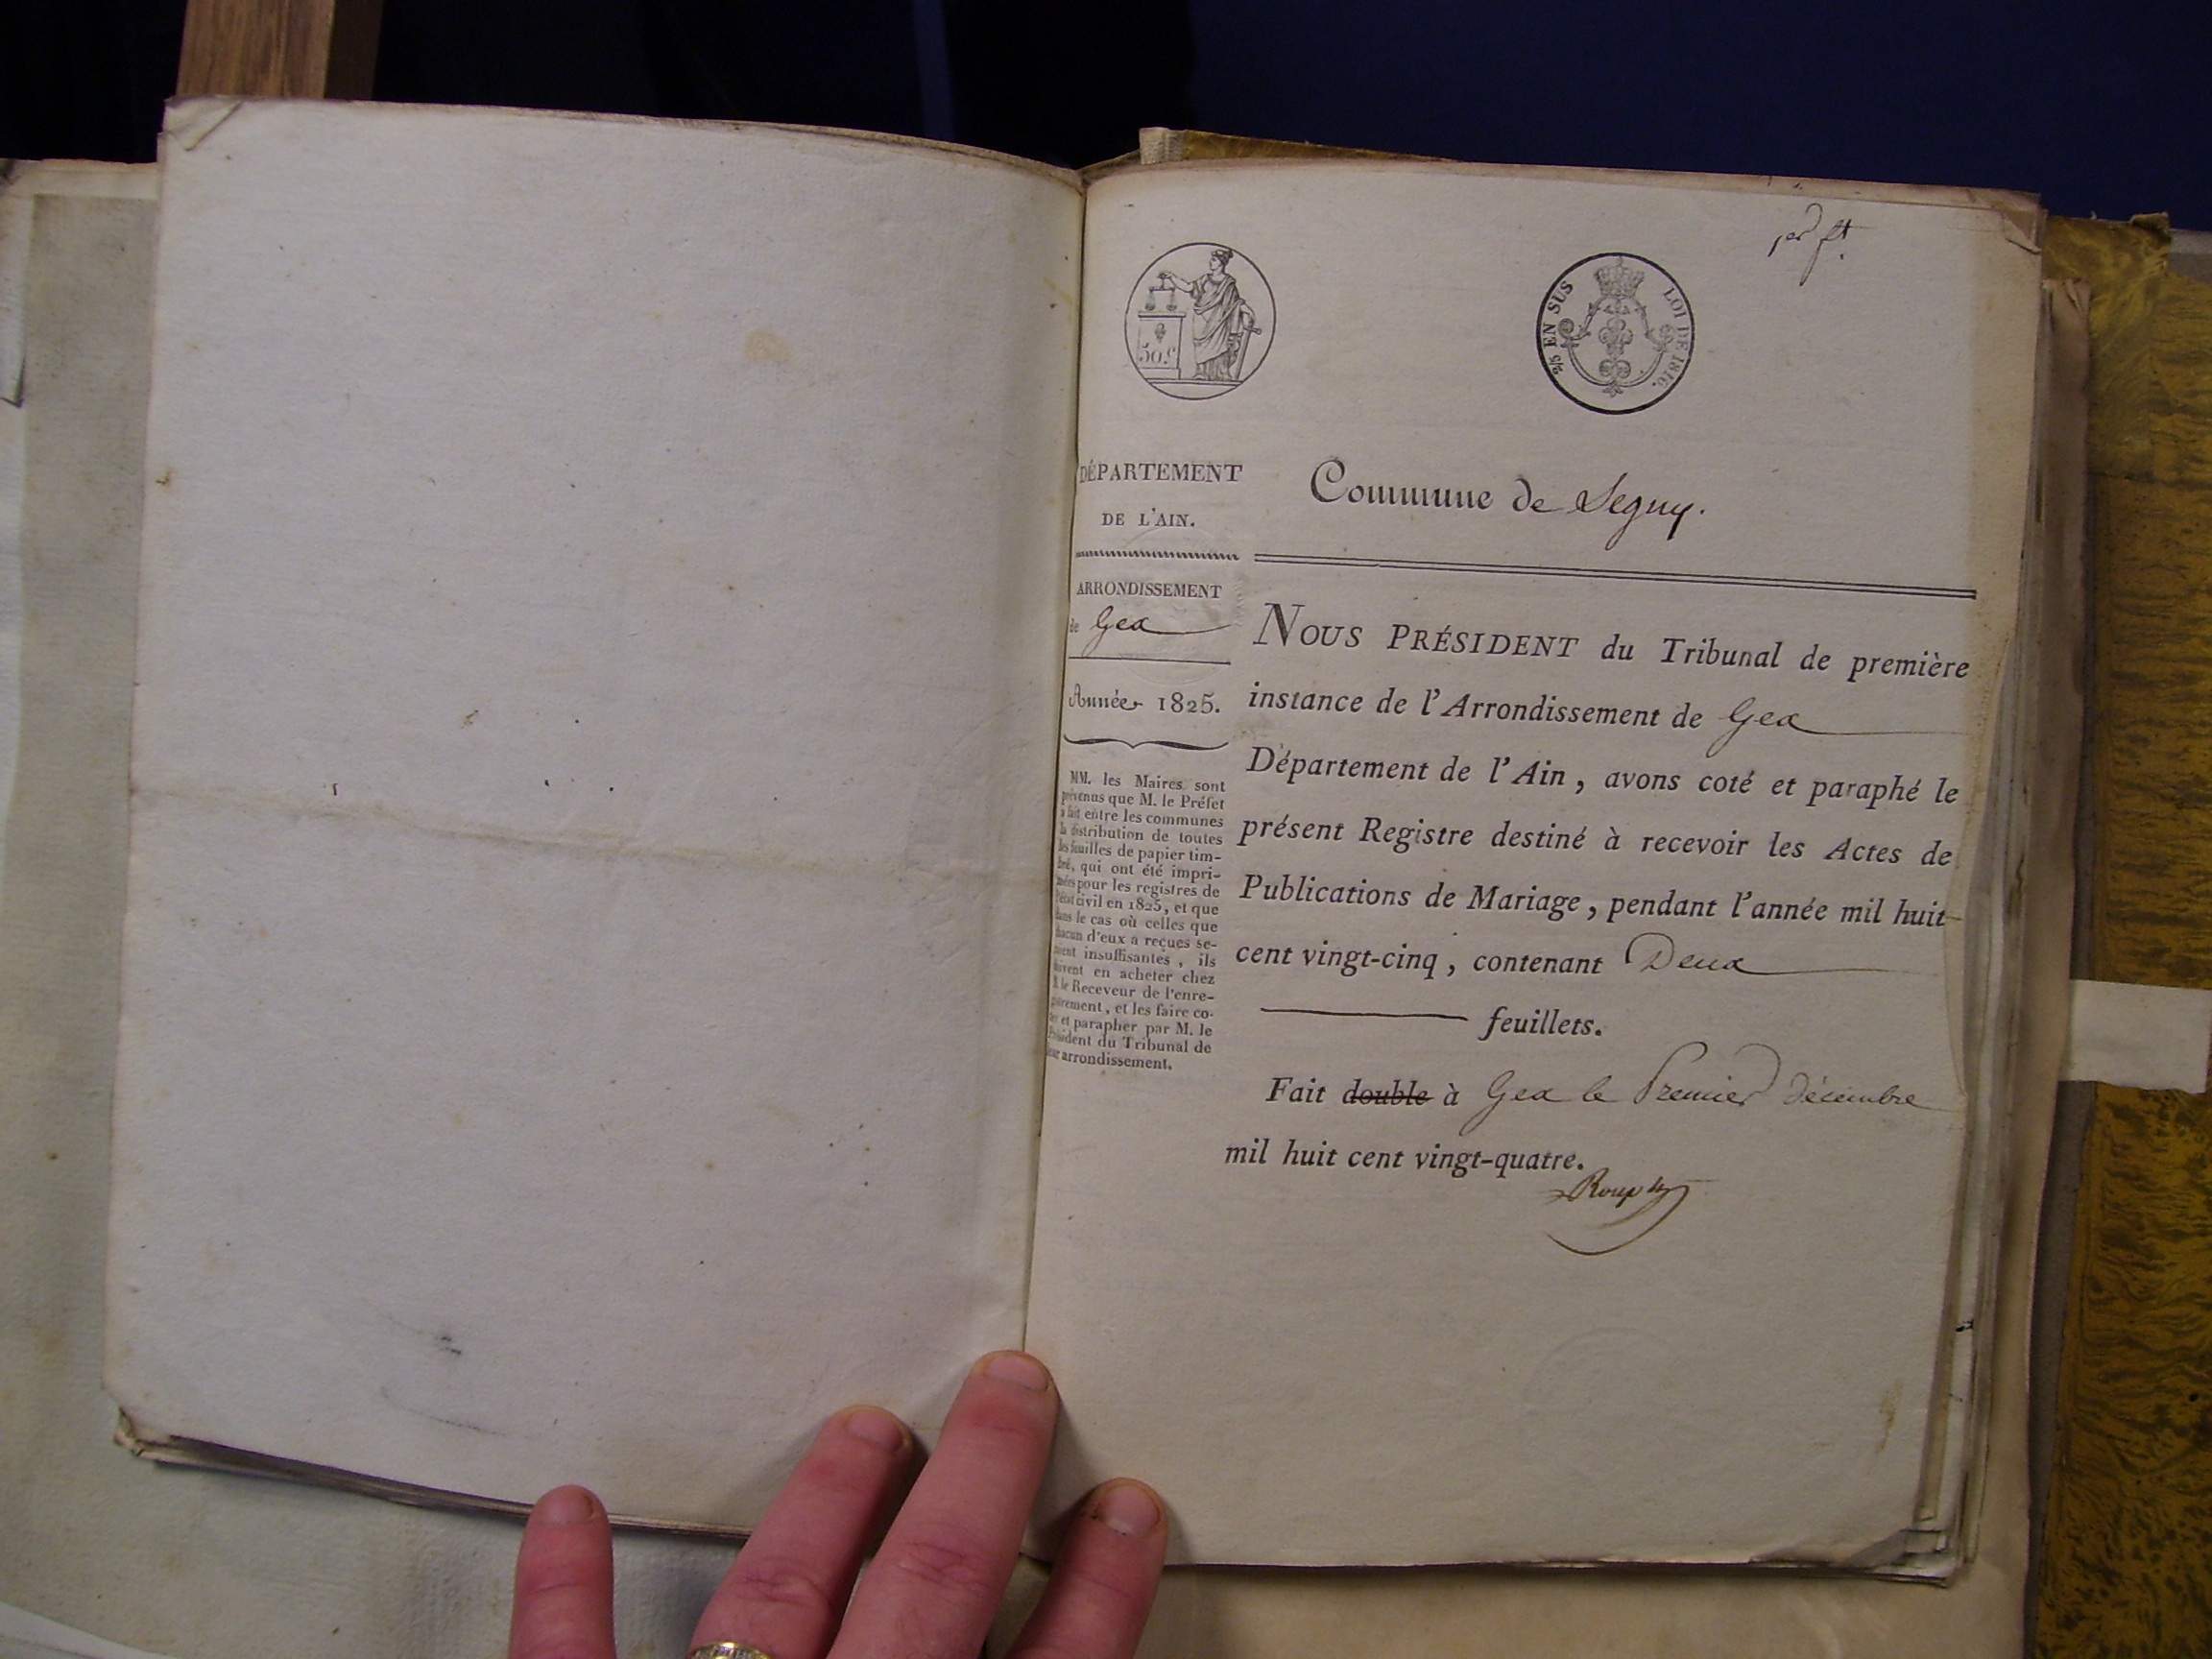 1er ft.
50 c.
2/5 EN SUS
LOI DE 1816.
DÉPARTEMENT
DE L'AIN.
ARRONDISSEMENT
de Gex
Année 1825.
MM. les Maires sont
prévenus que M. le Préfet
a fait entre les communes
la distribution de toutes
les feuilles de papier tim-
bré, qui ont été impri-
mées pour les registres de
l'état civil en 1825, et que
dans le cas où celles que
chacun d'eux a reçues se-
raient insuffisantes, ils
doivent en acheter chez
M. le Receveur de l'enre-
gistrement, et les faire co-
ter et parapher par M. le
Président du Tribunal de
leur arrondissement.
Commune de Segny.
NOUS PRÉSIDENT du Tribunal de première
instance de l'Arrondissement de Gex
Département de l'Ain, avons coté et paraphé le
présent Registre destiné à recevoir les Actes de
Publications de Mariage, pendant l'année mil huit
cent vingt-cinq, contenant Deux
feuillets.
Fait double à Gex le Premier décembre
mil huit cent vingt-quatre.